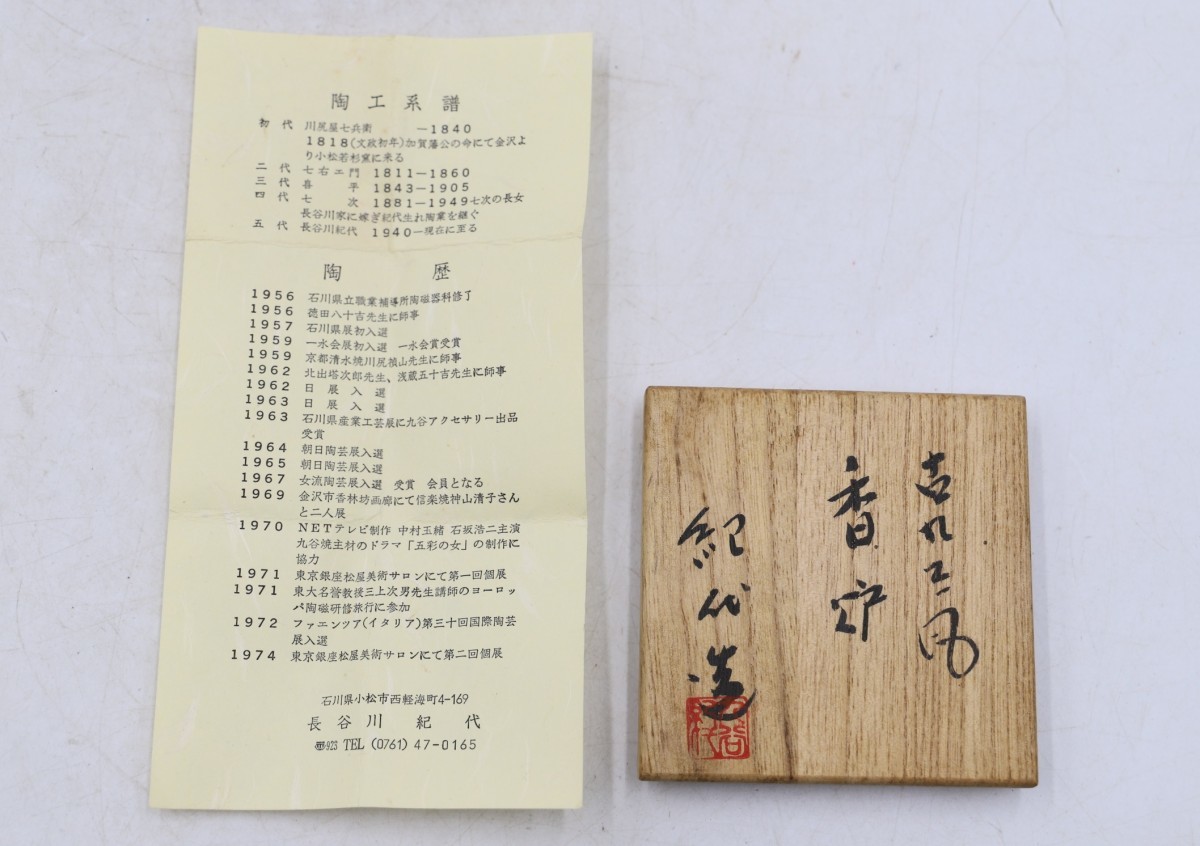 陶工系譜
初代 川尻屋七兵衛 ー1840
1818(文政初年)加賀藩公の命にて金沢よ
り小松若杉窯に来る
二代 七右エ門 1811ー1860
三代 喜平 1843ー1905
四代 七次 1881ー1949七次の長女
長谷川家に嫁ぎ紀代生れ陶業を継ぐ
五代 長谷川紀代 1940ー現在に至る
陶歴
1956 石川県立職業補導所陶磁器科修了
1956 徳田八十吉先生に師事
1957 石川県展初入選
1959 一水会展初入選 一水会賞受賞
1959 京都清水焼川尻禎山先生に師事
1962 北出塔次郎先生、浅蔵五十吉先生に師事
1962 日展入選
1963 日展入選
1963 石川県産業工芸展に九谷アクセサリー出品
受賞
1964 朝日陶芸展入選
1965 朝日陶芸展入選
1967 女流陶芸展入選 受賞 会員となる
1969 金沢市香林坊画廊にて信楽焼神山清子さん
と二人展
1970 NETテレビ制作 中村玉緒 石坂浩二主演
九谷焼主材のドラマ「五彩の女」の制作に
協力
1971 東京銀座松屋美術サロンにて第一回個展
1971 東大名誉教授三上次男先生講師のヨーロッ
パ陶磁研修旅行に参加
1972 ファエンツア(イタリア)第三十回国際陶芸
展入選
1974 東京銀座松屋美術サロンにて第二回個展
石川県小松市西軽海町4-169
長谷川紀代
〠923 TEL (0761) 47-0165
古九谷風
香炉
紀代造